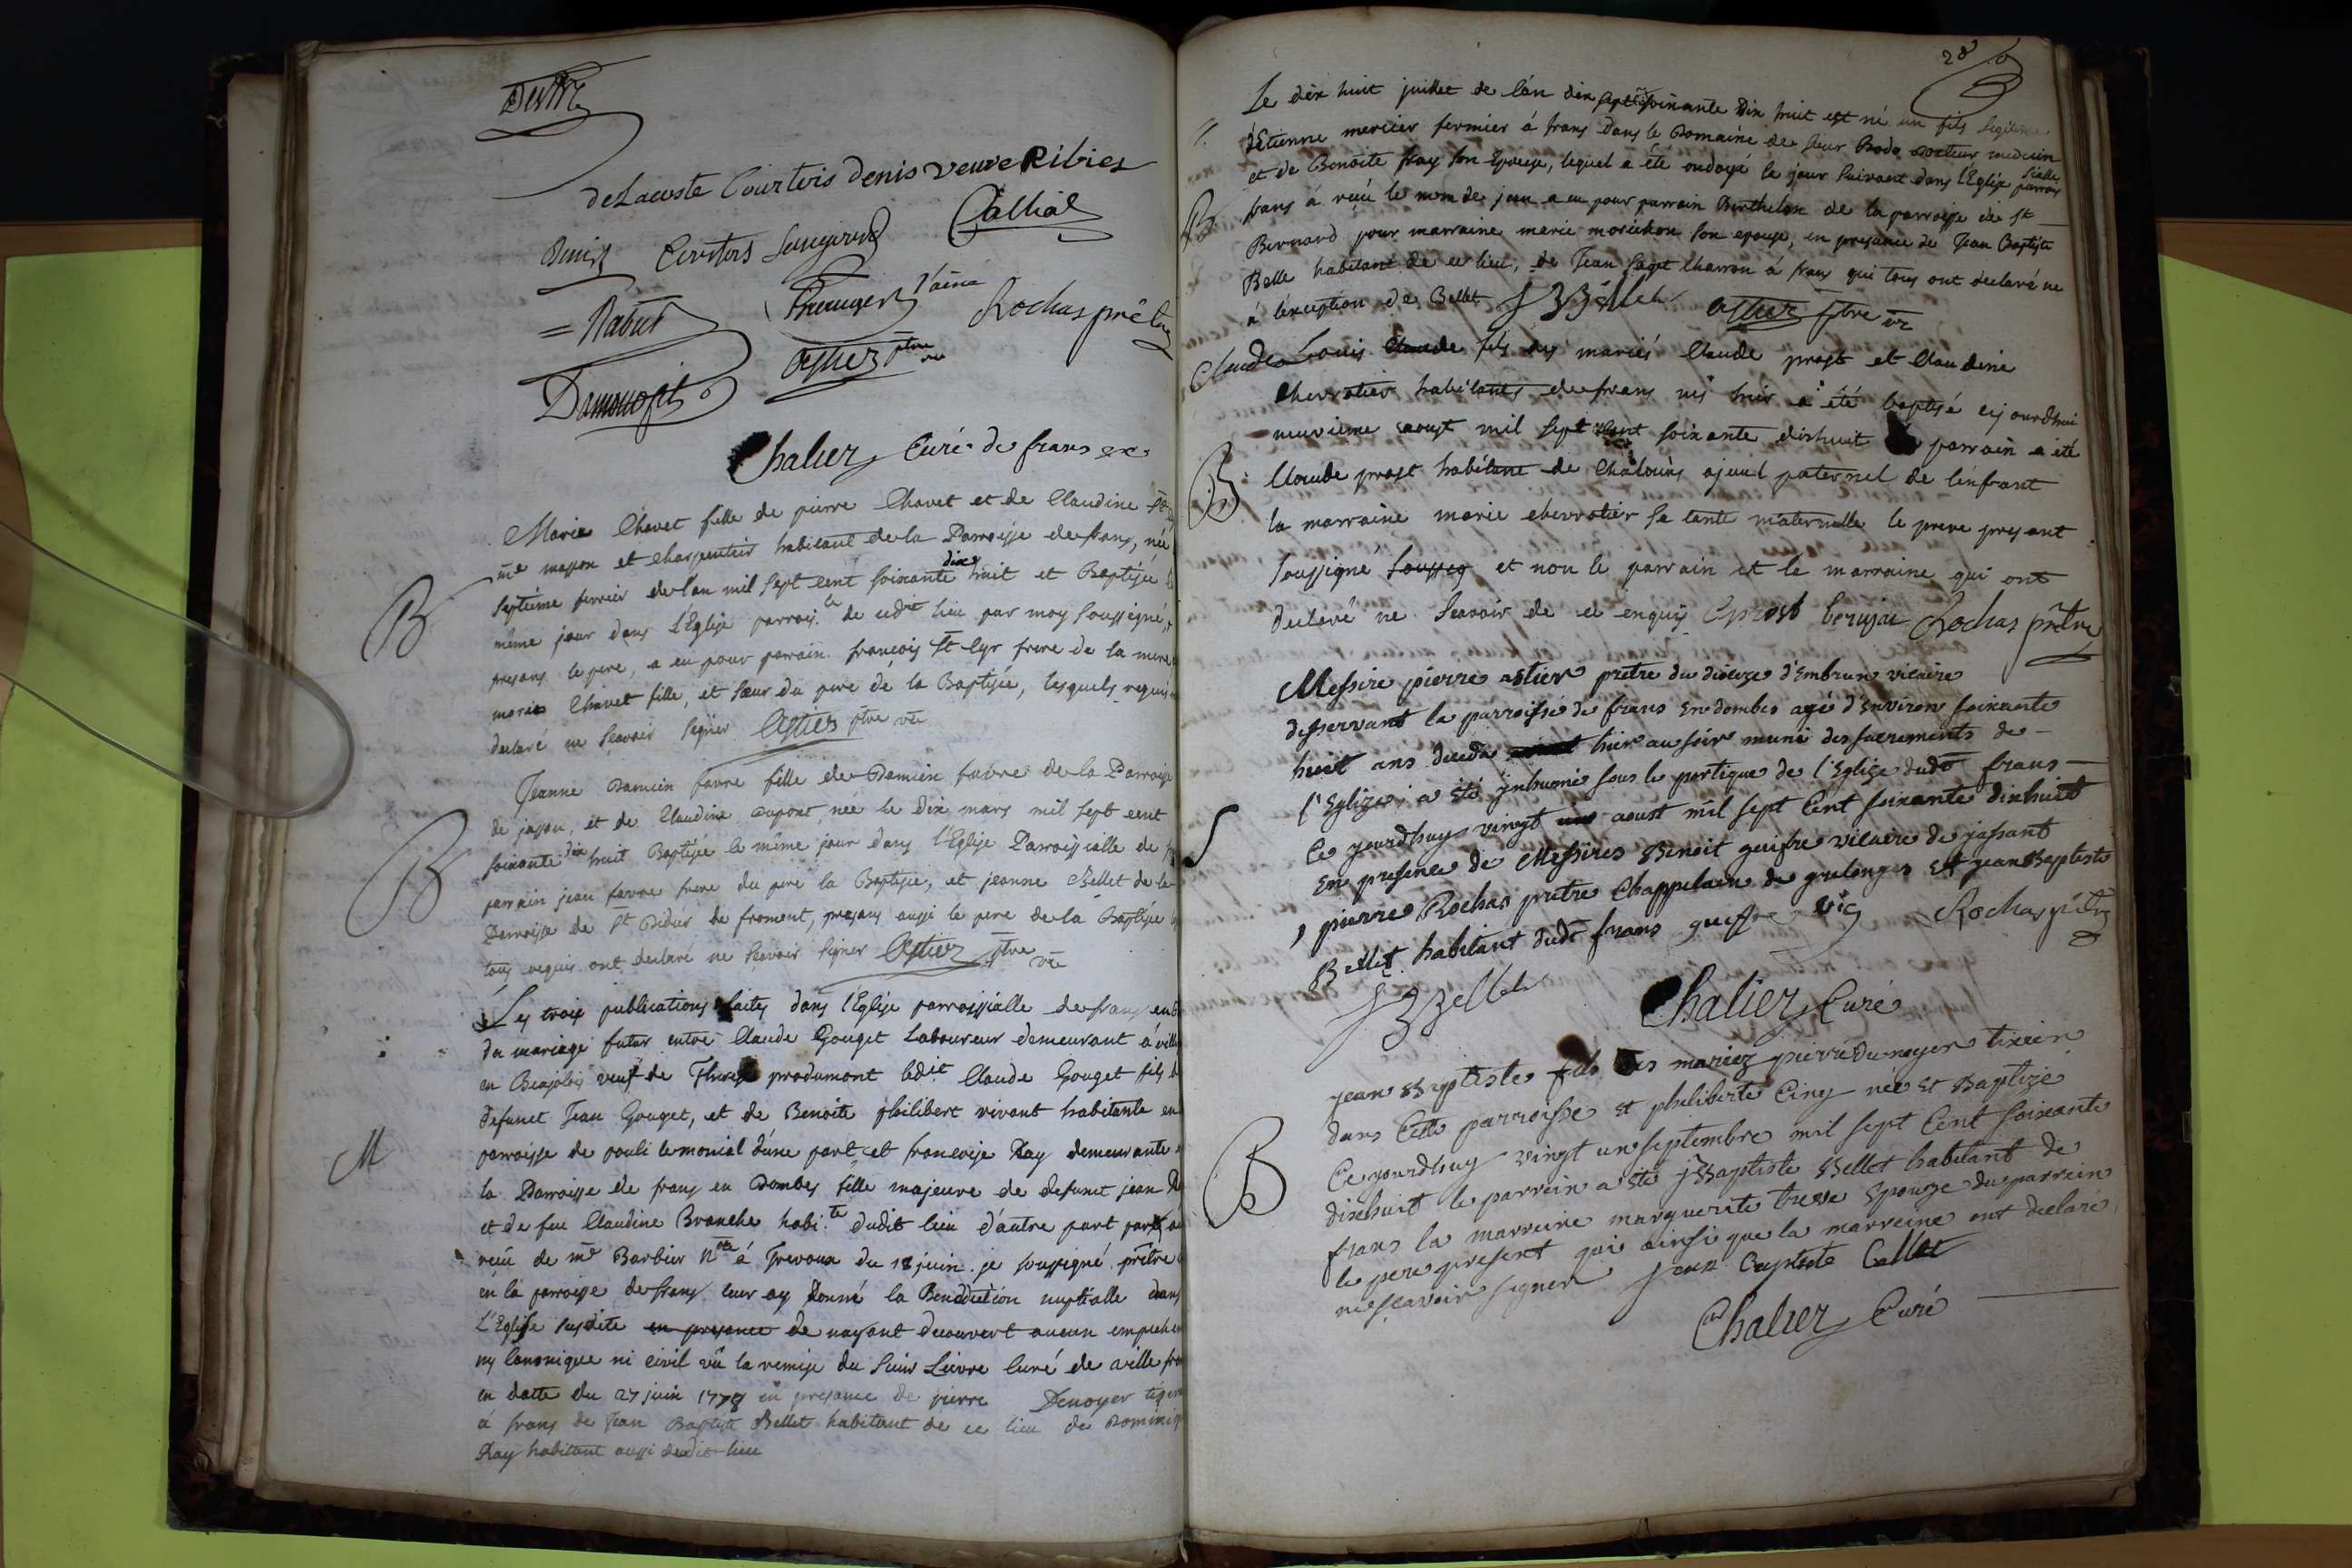 deLacoste Courtois denis veuve Ribies
Denis Courtois Calliat
= Nabut l'ainé Rochas prêtre
Astier ptre vre
Chalier Curé de frans
Marie Chavet fille de pierre Chavet et de Claudine
me masson et Charpentier habitant de la Parroisse de frans, née
septième fevrier de l'an mil sept cent soixante dix huit et Baptisée
même jour dans L'Eglise parrois.le de cedit lieu par moy soussigné,
presans le pere, a eu pour parrain francois St Cyr frere de la mere
marie Chavet fille, et sœur du pere de la Baptisée, lesquels requis
declaré ne scavoir signer Astier ptre vre
B
Jeanne Damien favre fille de Damien favre de la Parroisse
de et de Claudine Dupont, née le dix mars mil sept cent
soixante dix huit Baptisée le même jour dans l'Eglise Parroissialle de
parrain jean favre frere du pere la Baptisée, et jeanne Bellet de la
Parroisse de St Didier de froment, presans aussi le pere de la Baptisée
tous requis ont declaré ne scavoir signer Astier ptre vre
B
Les trois publications faites dans l'Eglise parroissialle de frans
du mariage futur entre Claude Gouget Laboureur demeurant à
en Beajolois veuf de produmont ledit Claude Gouget fils
defunct Jean Gouget, et de Benoite philibert vivant habitante en
parroisse de d'une part et francoise Ray demeurante
M
la Parroisse de frans en Dombes fille majeure de defunct jean
et de feu Claudine Branche habi.te dudit lieu d'autre part
reçu de me Barbier Nre à Trevoux du 18 juin. je soussigné prêtre
en la parroisse de frans leur ay donné la Benediction nuptialle dans
L'Eglise susdite en presance de nayant decouvert aucun
ny Canonique ni civil vû la remise du sieur Lievre Curé de
en datte du 27 juin 1778 en presance de pierre Denoyer
à frans de Jean Baptiste Bellet habitant de ce lieu de
Ray habitant aussi dudit lieu
28
Le dix huit juillet de l'an dix sept soixante Dix huit est né un fils legitime
d'Etienne mercier fermier à frans dans le Domaine de sieur Bodo docteur medecin
et de Benoite Ray son Epouse, lequel a été ondoyé le jour suivant dans l'Eglise parrois
sialle
frans à reçu le nom de jean a eu pour parrain Berthelon de la parroisse de St
B
Bernard pour marraine marie morichon son epouse, en presance de Jean Baptiste
Belle habitant de ce lieu, de Jean Saget Charron à frans qui tous ont declaré ne
à lexception de Bellet J B Bellet Astier ptre vre
Claude Louis Claude fils des mariés Claude prost et Claudine
Chervatier habitants de frans né hier a été baptisé ajourdhui
neuvieme aoust mil sept cent soixante dixhuit parrain a été
B
Claude prost habitant de Chaloins ajeul paternel de l'enfrant
la marraine marie chervatier sa tante maternelle le prere present
soussigné sousseg et non le parrain et le marraine qui ont
declaré ne scavoir de ce enquis C prost Rochas prêtre
Messire pierre astier prêtre du diocese d'Embrun vicaire
desservant la parroisse de frans en dombes agé d'Environ soixante
huit ans decedé hier au soir muni des sacrements de
l'Eglize, a été jnhumé sous le portique de l'Eglize dudt frans
Ce jourdhuy vingt un aoust mil sept Cent soixante dixhuit
S
En presence de Messires Benoit vicaire de jassant
, pierre Rochas prêtre Chappelain de et jean Baptiste
Bellet habitant dudt frans vic Rochas prêtre
J B Bellet Chalier Curé
jean Baptiste fils des mariez pierre du noyer tixier
dans Cette parroisse et philiberte Ciny née et Baptizé
Ce jourdhuy vingt un septembre mil sept Cent soixante
B
dixhuit le parrein a été jn Baptiste Bellet habitant de
frans la marreine marguerite Epouze du parrein
le pere present qui ainsi que la marreine ont declaré
ne scavoir signer jean Baptiste Bellet
Chalier Curé